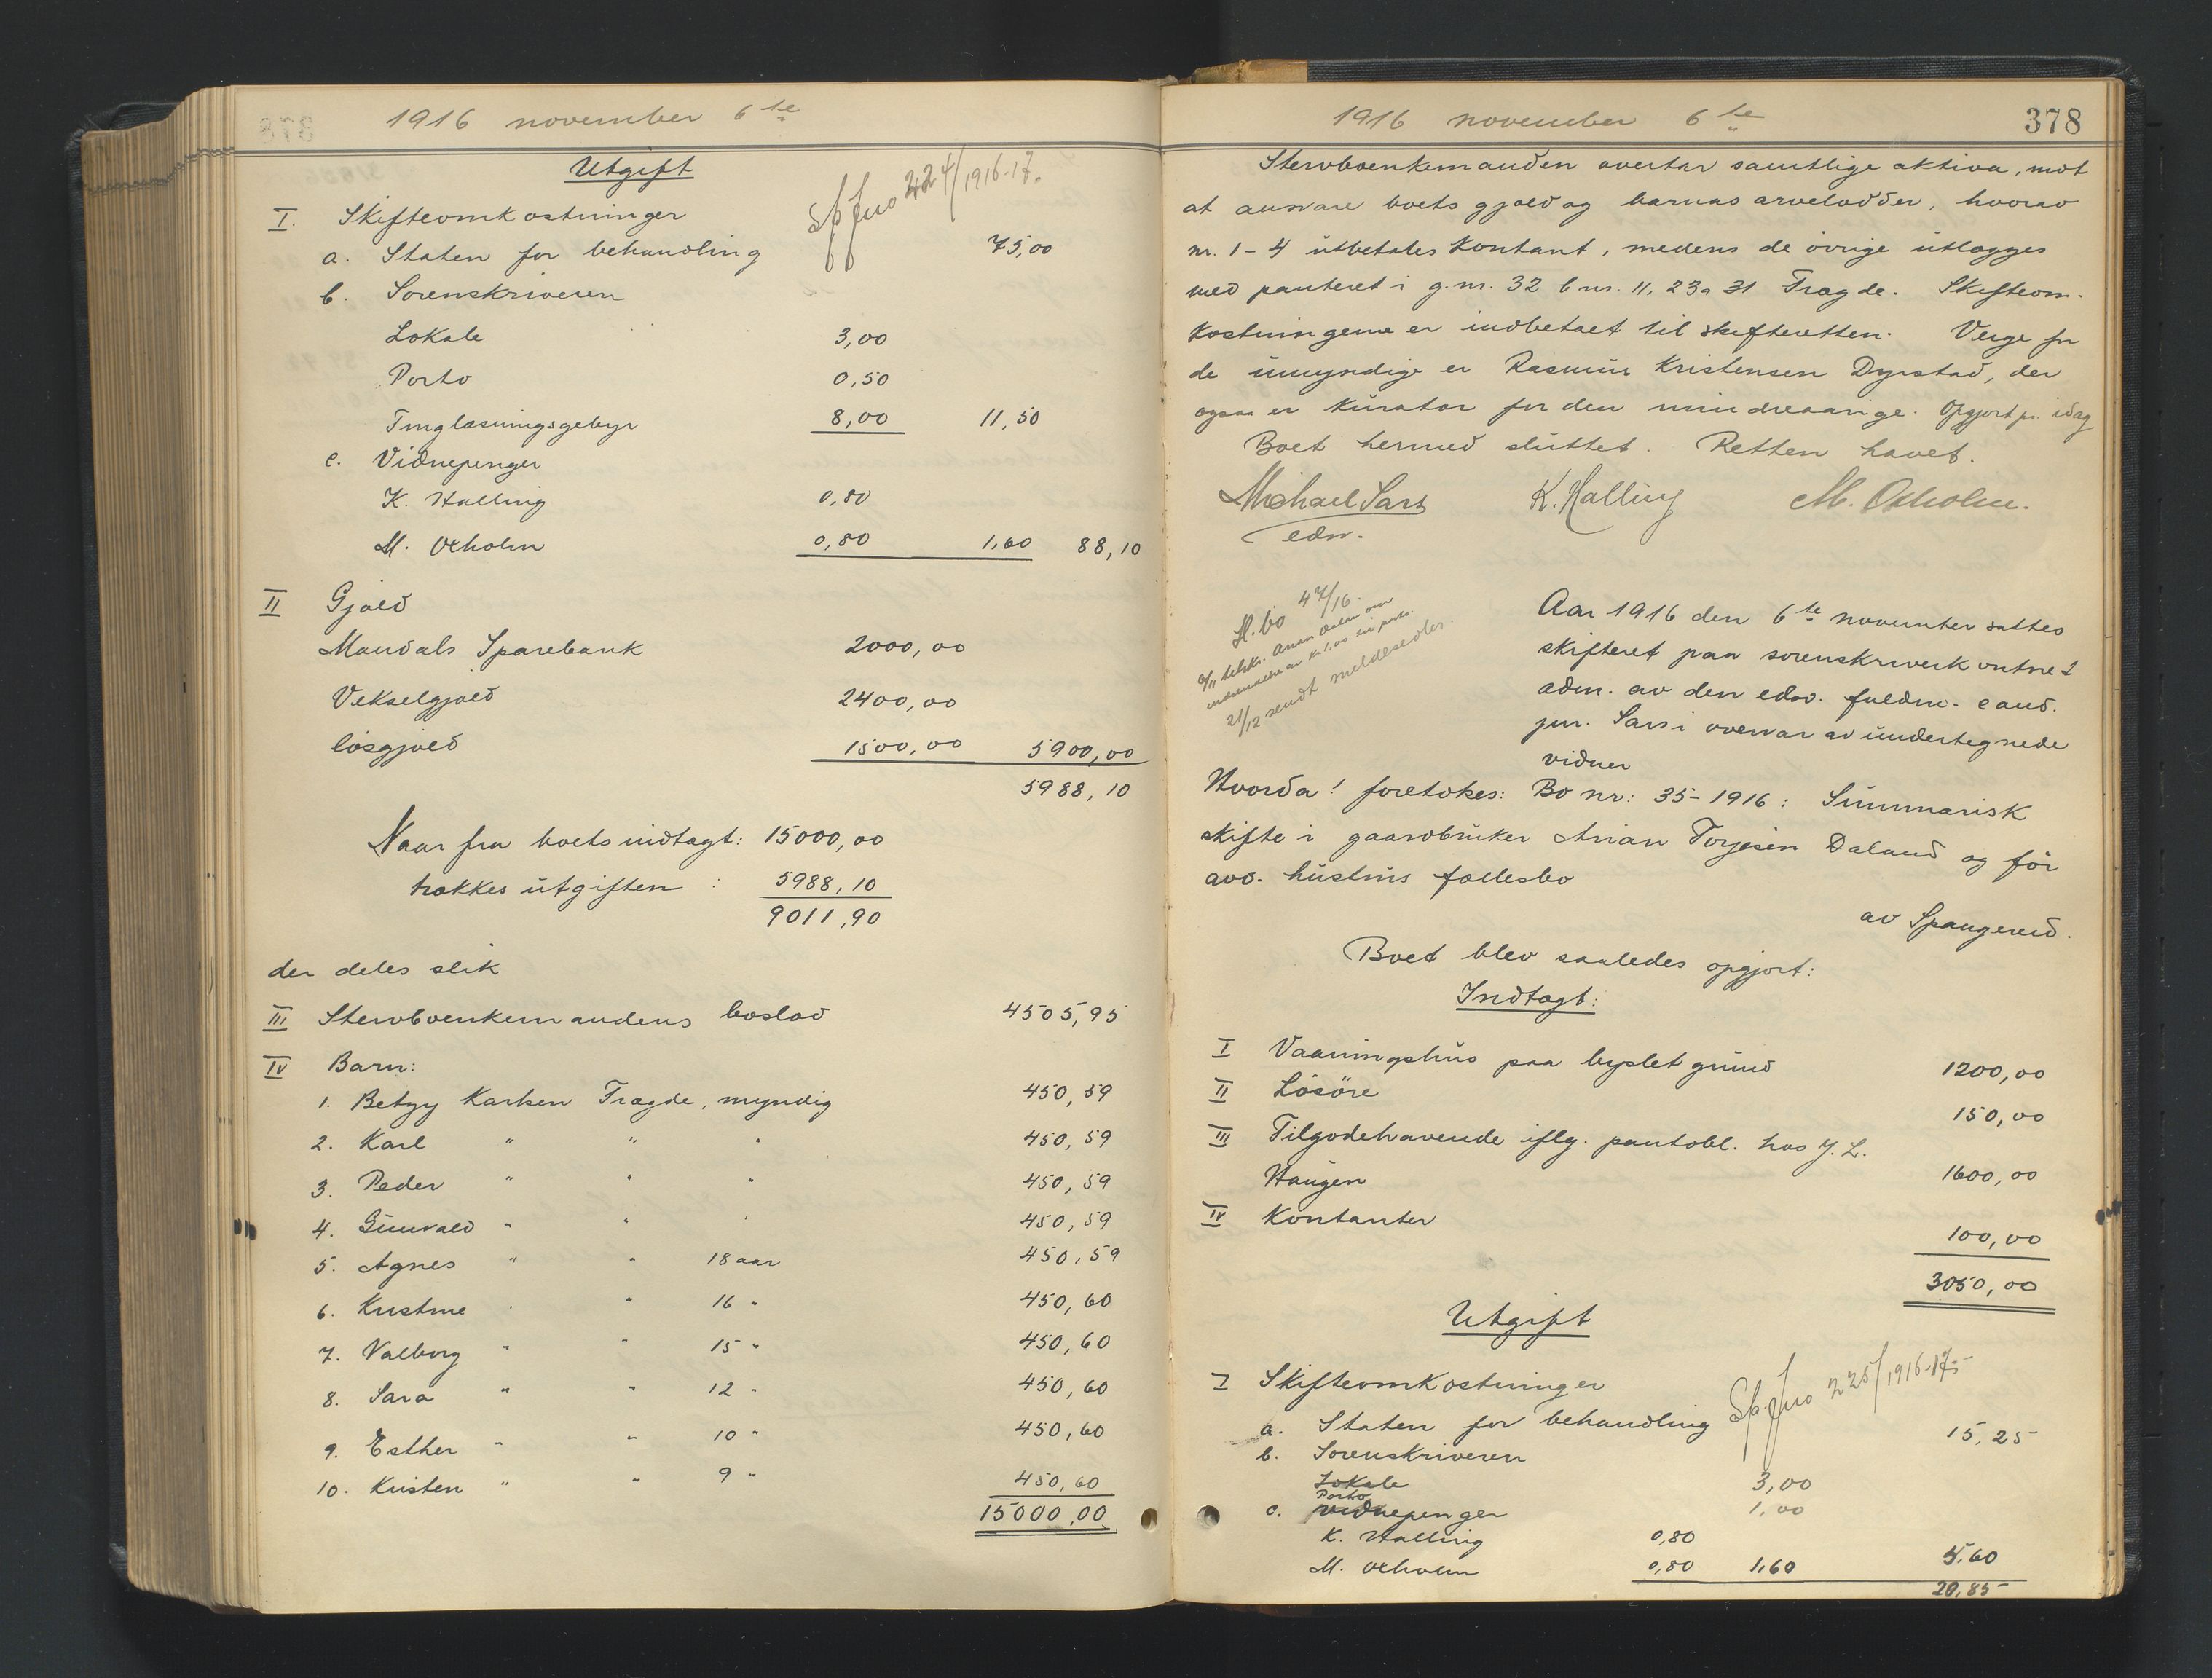 1916 november 6te
Utgift
Sp jno 224/1916-17.
I. Skifteomkostninger
a. Staten for behandling 75,00
b. Sorenskriveren
Lokale 3,00
Porto 0,50
Tinglæsningsgebyr 8,00 11,50
c. Vidnepenger
K. Halling 0,80
M. Oxholm 0,80 1,60 88,10
II Gjæld
Mandals Sparebank 2000,00
Vekselgjæld 2400,00
løsgjæld 1500,00 5900,00
5988,10
Naar fra boets indtægt: 15000,00
trækkes utgiften : 5988,10
9011,90
der deles slik
III Stervboenkemandens boslod 4505,95
IV Barn:
1. Betzy Karlsen Trægde, myndig 450,59
2. Karl " " " 450,59
3. Peder " " " 450,59
4. Gunvald " " " 450,59
5. Agnes " " 18 aar 450,59
6. Kristine " " 16 " 450,60
7. Valborg " " 15 " 450,60
8. Sara " " 12 " 450,60
9. Esther " " 10 " 450,60
10. Kristen " " 9 " 450,60
15000,00
1916 november 6te
378
Stervboenkemanden overtar samtlige aktiva, mot
at ansvare boets gjæld og barnas arvelodder, hvorav
nr. 1-4 utbetales kontant, medens de øvrige utlægges
med panteret i g.nr. 32 bnr. 11, 23 a 31 Trægde. Skifteom-
kostningerne er indbetalt til skifteretten. Verge for
de umyndige er Rasmus Kristensen Dyrstad, der
ogsaa er kurator for den mindreaarige. Opgjort pr. idag
Boet hermed sluttet. Retten hævet.
Michael Sars K. Halling M. Oxholm.
edsv.
H. bo 47/16.
21/12 sendt meldesedler.
Aar 1916 den 6te november sattes
skifteret paa sorenskriverkontoret
adm. av den edsv. fuldm. cand.
jur. Sars i overvær av undertegnede
vidner
Hvorda! foretokes: Bo nr: 35-1916: Summarisk
skifte i gaardbruker Anian Torjesen Daland og før
avd. hustrus fællesbo
av Spangereid.
Boet blev saaledes opgjort:
Indtægt:
I Vaaningshus paa bygslet grund 1200,00
II Løsøre 150,00
III Tilgodehavende iflg. pantobl. hos J. L.
Haugen 1600,00
IV Kontanter 100,00
3050,00
Utgift
Sp. jno 225/1916-17
I Skifteomkostninger
a. Staten for behandling 15,25
b. Sorenskriveren
Lokale 3,00
Porto 1,00
c. Vidnepenger
K. Halling 0,80
M. Oxholm 0,80 1,60 5,60
20,85